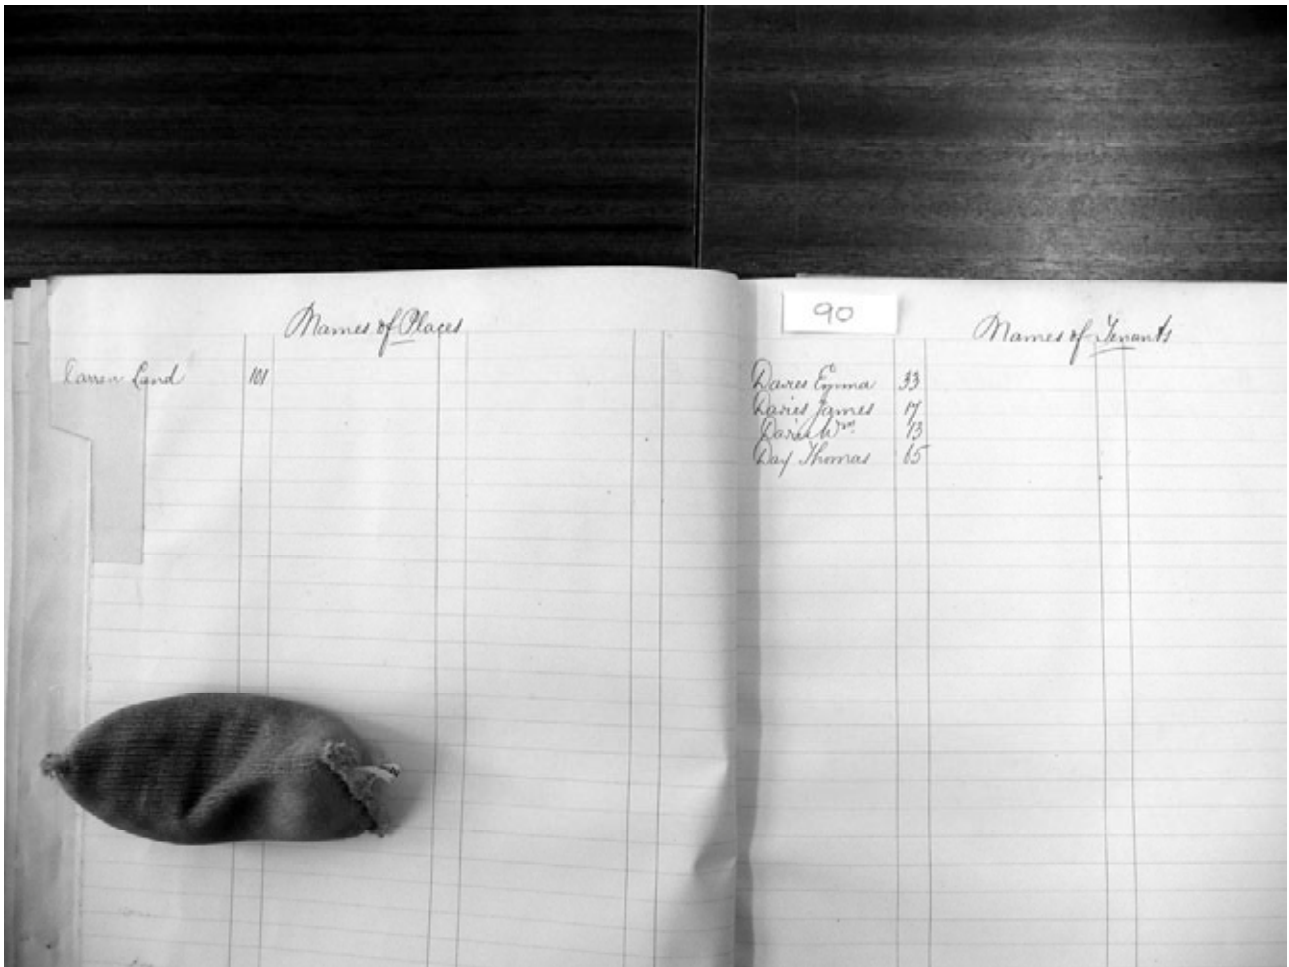 Names of Places
Darren Land 101
90
Names of Tenants
Davies Emma 33
Davies James 17
Davies Wm. 13
Day Thomas 65